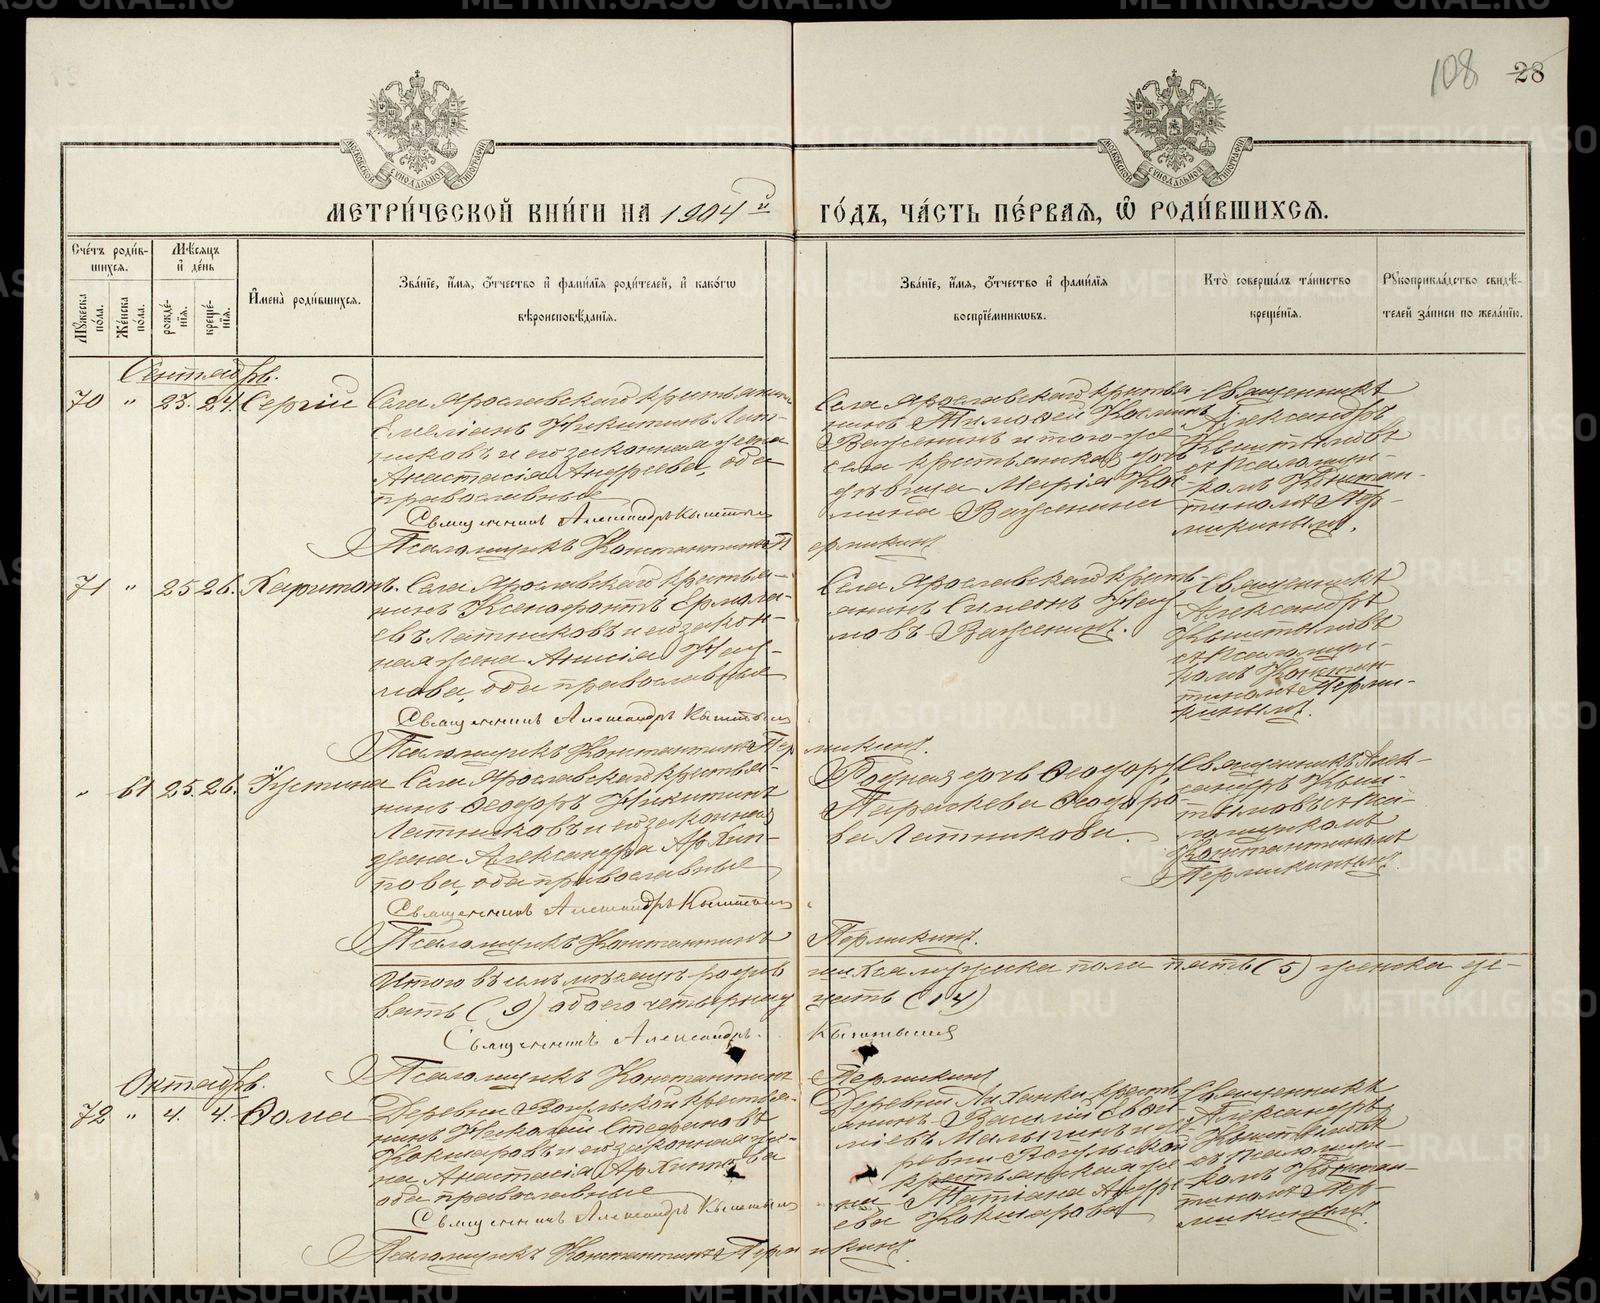 108 28
МЕТРИ́ЧЕСКОЙ КНИ́ГИ НА 1904 й ГО́ДЪ, ЧА́СТЬ ПЕ́РВАѦ, Ѡ҆ РОДИ́ВШИХСѦ.
Сче́тъ роди́вшихсѧ.
Мꙋ́жеска по́ла.
Же́нска по́ла.
Мѣ́сѧцъ и҆ де́нь
рожде́нїѧ.
креще́нїѧ.
И҆мена̀ роди́вшихсѧ.
Зва́нїе, и҆́мѧ, ѻ҆́тчество и҆ фами́лїѧ роди́телей, и҆ како́гѡ
вѣроисповѣ́данїѧ.
Зва́нїе, и҆́мѧ, ѻ҆́тчество и҆ фами́лїѧ
воспрїе́мникѡвъ.
Кто̀ соверша́лъ та́инство
креще́нїѧ.
Рꙋкоприкла́дство свидѣ́-
телей за́писи по жела́нїю.
Сентябрь.
70 " 23. 24. Сергій
Села Ярославскаго крестьянинъ
Емеліанъ Никитинъ Лат-
никовъ и его законная жена
Анастасія Андреева, оба
православные
Священникъ Александръ Кыштымовъ
Псаломщикъ Константинъ Пермикинъ
Села Ярославскаго крестья-
нинъ Тимофей Косминъ
Важенинъ и того-же
села крестьянская дочь
дѣвица Марія Кос-
мина Важенина
Священникъ
Александръ
Кыштымовъ
съ псаломщи-
комъ Констан-
тиномъ Пер-
микинымъ.
71 " 25 26. Харитонъ.
Села Ярославскаго крестья-
нинъ Ксенофонтъ Ермола-
евъ Латниковъ и его закон-
ная жена Анисія Нау-
мова, оба православные
Священникъ Александръ Кыштымовъ
Псаломщикъ Константинъ Пермикинъ.
Села Ярославскаго кресть-
янинъ Симеонъ Нау-
мовъ Важенинъ.
Священникъ
Александръ
Кыштымовъ
съ псаломщи-
комъ Констан-
тиномъ Перми-
кинымъ.
" 61 25. 26. Іустина
Села Ярославскаго крестья-
нинъ Ѳеодоръ Никитинъ
Латниковъ и его законная
жена Александра Архип-
пова, оба православные
Священникъ Александръ Кыштымовъ
Псаломщикъ Константинъ Пермикинъ.
Родная дочь Ѳеодору
Параскева Ѳеодоро-
ва Латникова.
Священникъ Алек-
сандръ Кыш-
тымовъ съ пса-
ломщикомъ
Константиномъ
Пермикинымъ.
Итого въ семъ мѣсяцѣ родив шихся мужеска пола пять (5) женска де-
вять (9) обоего четырнад цать (14)
Священникъ Александръ. Кыштымов
Псаломщикъ Константинъ Пермикинъ
Октябрь.
72 " 4. 4. Ѳома
Деревни Вогульской крестья-
нинъ Николай Стефановъ
Кокшаровъ и его законная же-
на Анастасія Архиппова
оба православные
Священникъ Александръ Кыштымовъ
Псаломщикъ Константинъ Пермикинъ.
крестья-
янинъ Василій
Малыгинъ и де-
ревни Вогульской
крестьянская же-
на Татьяна Андре-
ева Кокшарова
Священникъ
Александръ
Кыштымовъ
съ псаломщи-
комъ Констан-
тиномъ Пер-
микинымъ.
METRIKI.GASO-URAL.RU